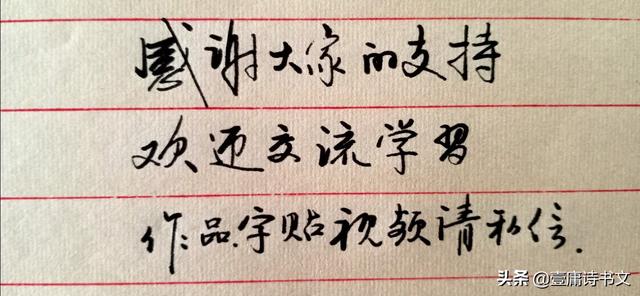 感谢大家的支持
欢迎交流学习
作品.字贴视频请私信.
头条 @壹庸诗书文